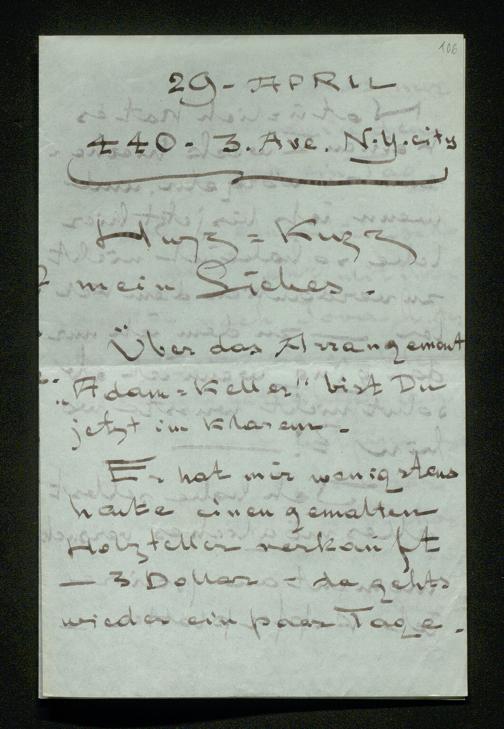 106
29 - APRIL
440 - 3. Ave. N.Y. city
mein Liebes.
Über das Arrangement
"Adam = Keller" bist Du
jetzt im Klaren.
Er hat mir wenigstens
heute einen gemalten
Holzteller verkauft
— 3 Dollar - da gehts
wieder ein paar Tage.